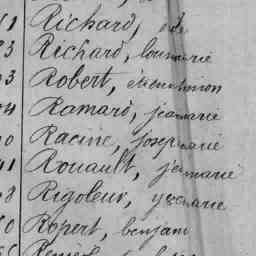 Richard,
3 Richard, louismarie
3 Robert, etiennesimon
4 Ramard, jeanmarie
0 Racine, josephmarie
41 Rouault, jeanmarie
8 Rigoleur, yvesmarie
0 Ropert, benjam